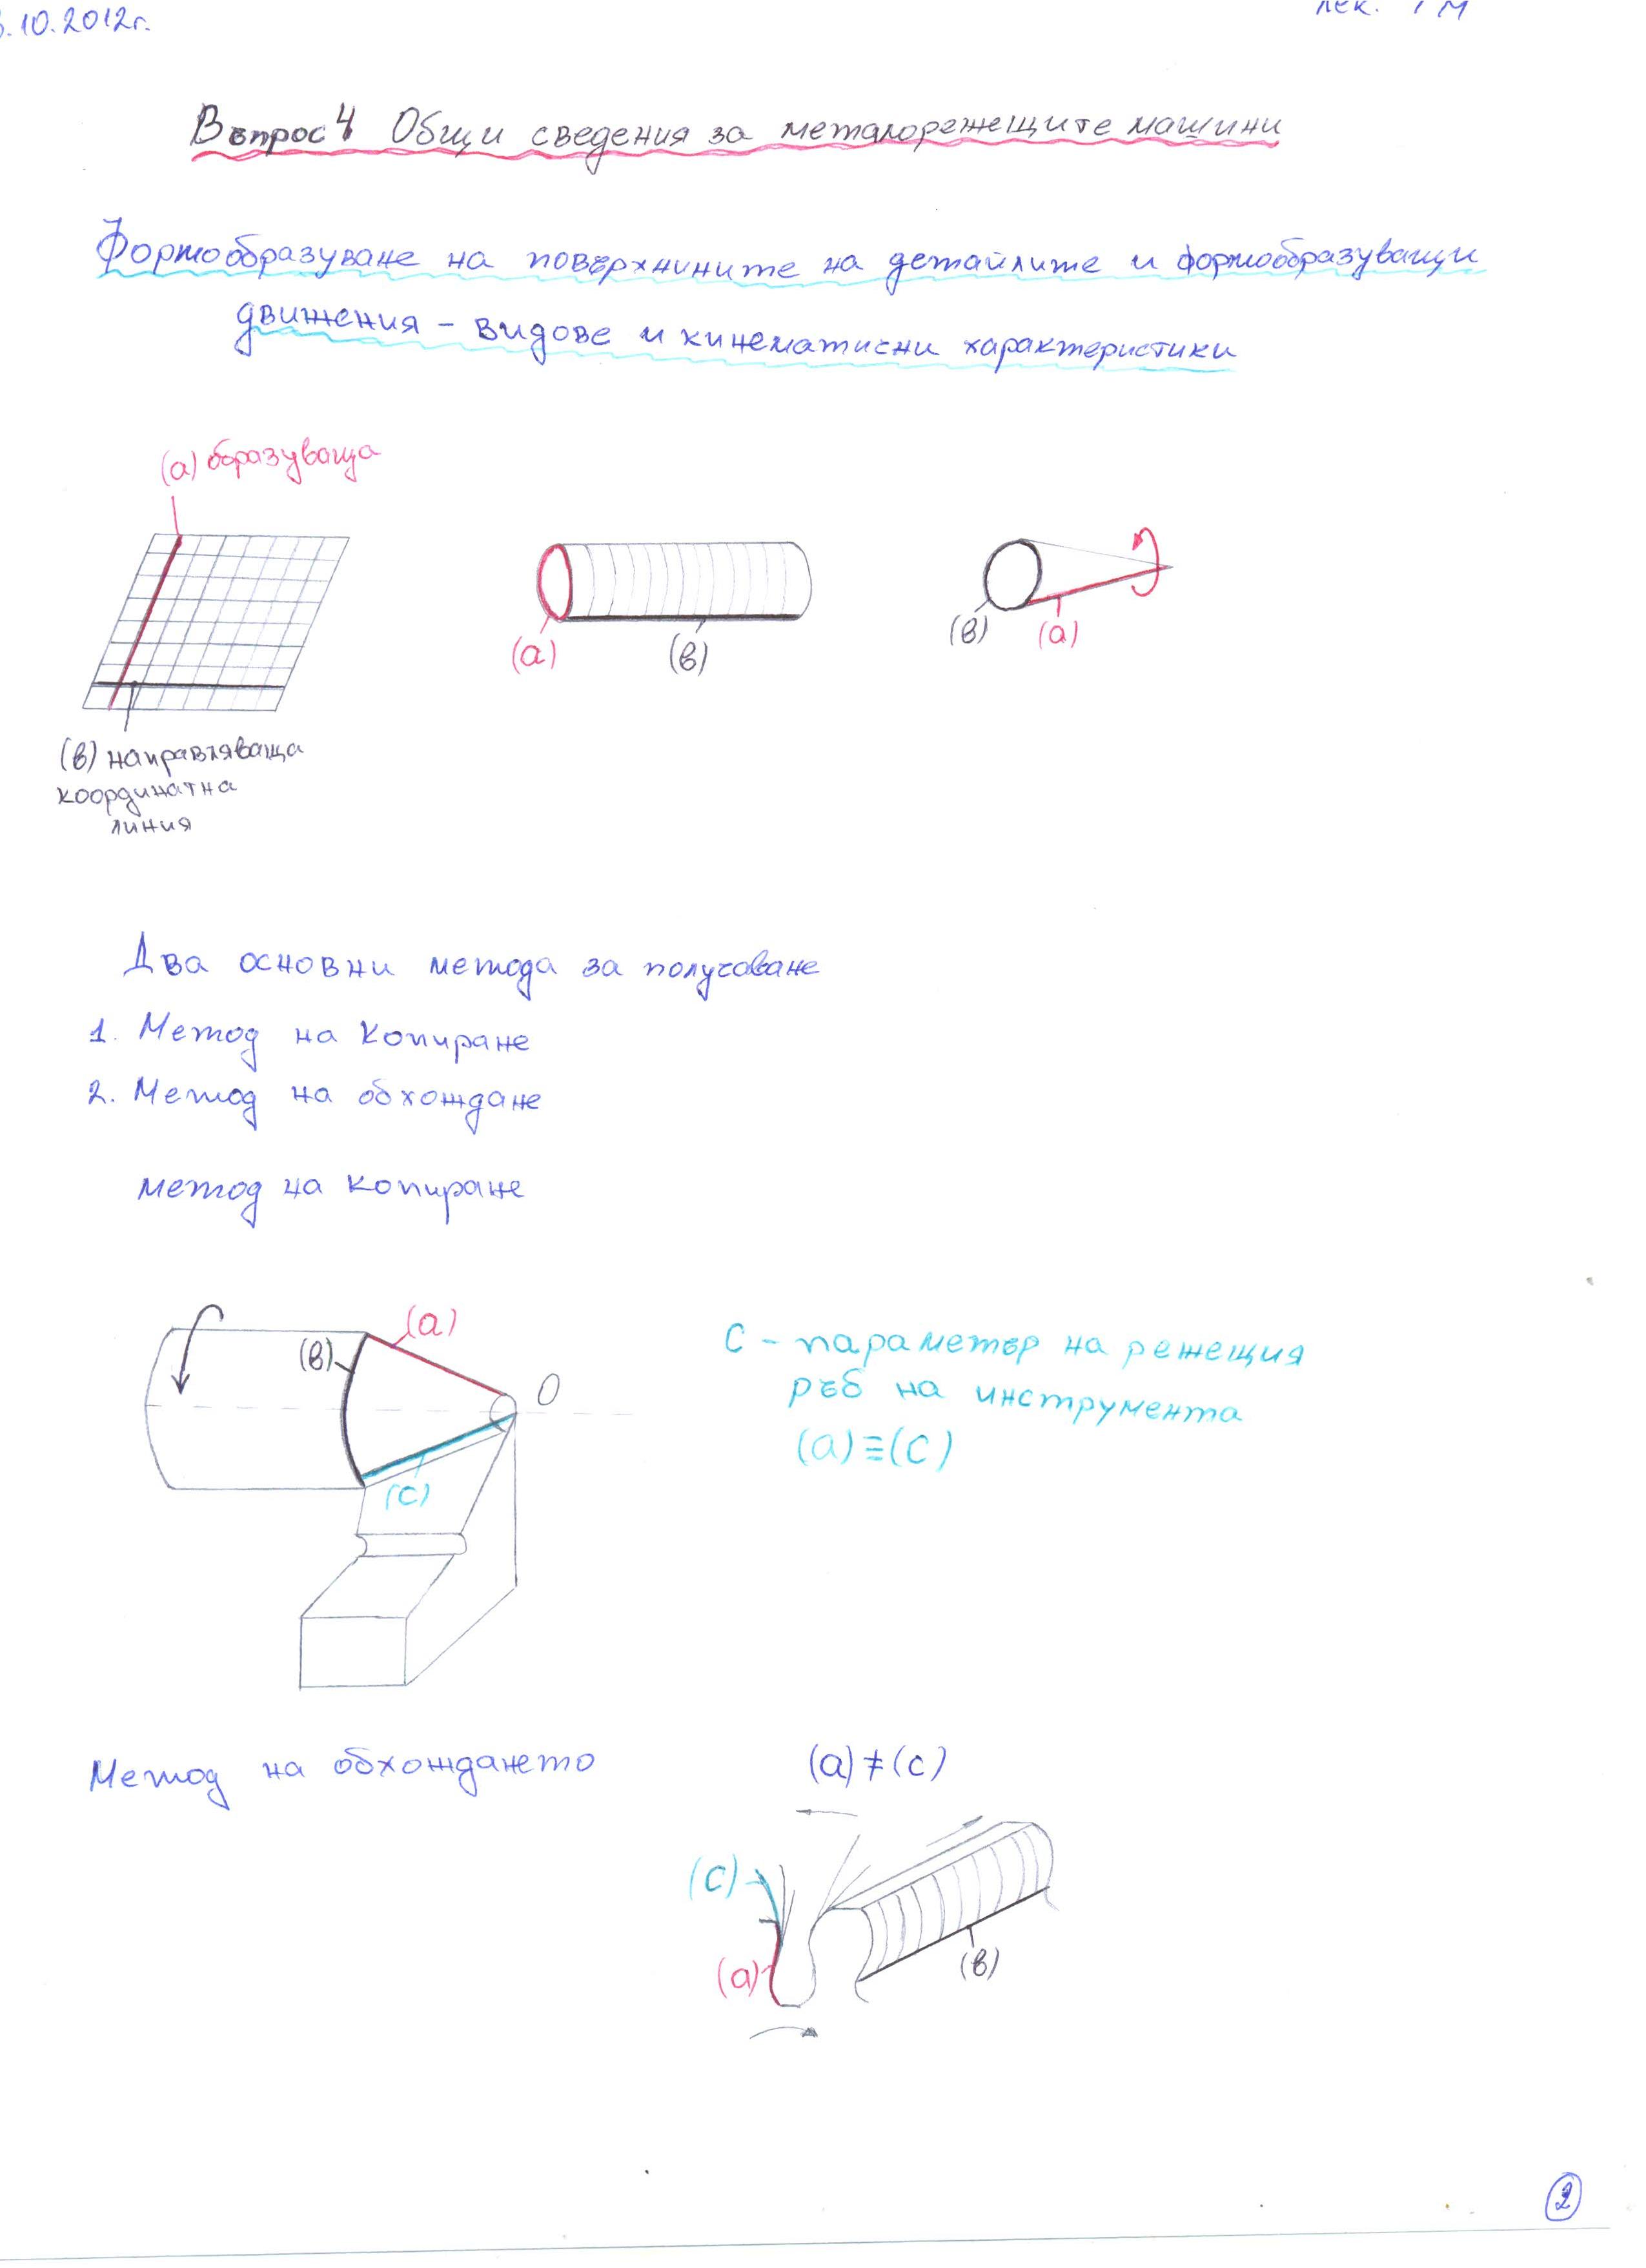 .10.2012г.
лек. ТМ
Въпрос 4 Общи сведения за металорежещите машини
Формообразуване на повърхнините на детайлите и формообразуващи
движения - видове и кинематични характеристики
(a) образуваща
(a)
(в)
(в)
(a)
(в) направляваща
координатна
линия
Два основни метода за получаване
1. Метод на Копиране
2. Метод на обхождане
метод на копиране
(a)
(в)
O
(c)
C - параметър на режещия
ръб на инструмента
(a)≡(c)
Метод на обхождането
(a)≠(c)
(c)
(a)
(в)
2